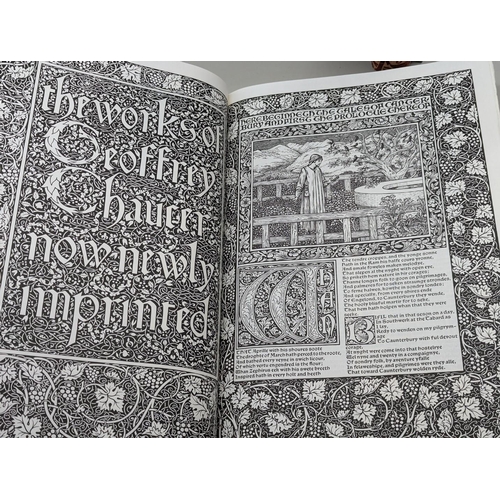 the works of
Geoffrey
Chaucer
now newly
imprinted
HERE BEGINNETH THE TALES OF CANTER
BURY AND FIRST THE PROLOGUE THEREOF
The tendre croppes, and the yonge sonne
Hath in the Ram his halfe cours yronne,
And smale foweles maken melodye,
That slepen al the night with open eye,
So priketh hem nature in hir corages;
Thanne longen folk to goon on pilgrimages,
And palmeres for to seken straunge strondes,
To ferne halwes, kowthe in sondry londes;
And specially, from every shires ende
Of Engelond, to Caunterbury they wende,
The hooly blisful martir for to seke,
That hem hath holpen whan that they were
seeke.
WHAN
THAT Aprille with his shoures soote
The droghte of March hath perced to the roote,
And bathed every veyne in swich licour,
Of which vertu engendred is the flour;
Whan Zephirus eek with his swete breeth
Inspired hath in every holt and heeth
BIFIL that in that seson on a day,
In Southwerk at the Tabard as
I lay,
Redy to wenden on my pilgrym-
age
To Caunterbury with ful devout
corage,
At night were come into that hostelrye
Wel nyne and twenty in a compaignye,
Of sondry folk, by aventure yfalle
In felaweshipe, and pilgrimes were they alle,
That toward Caunterbury wolden ryde.